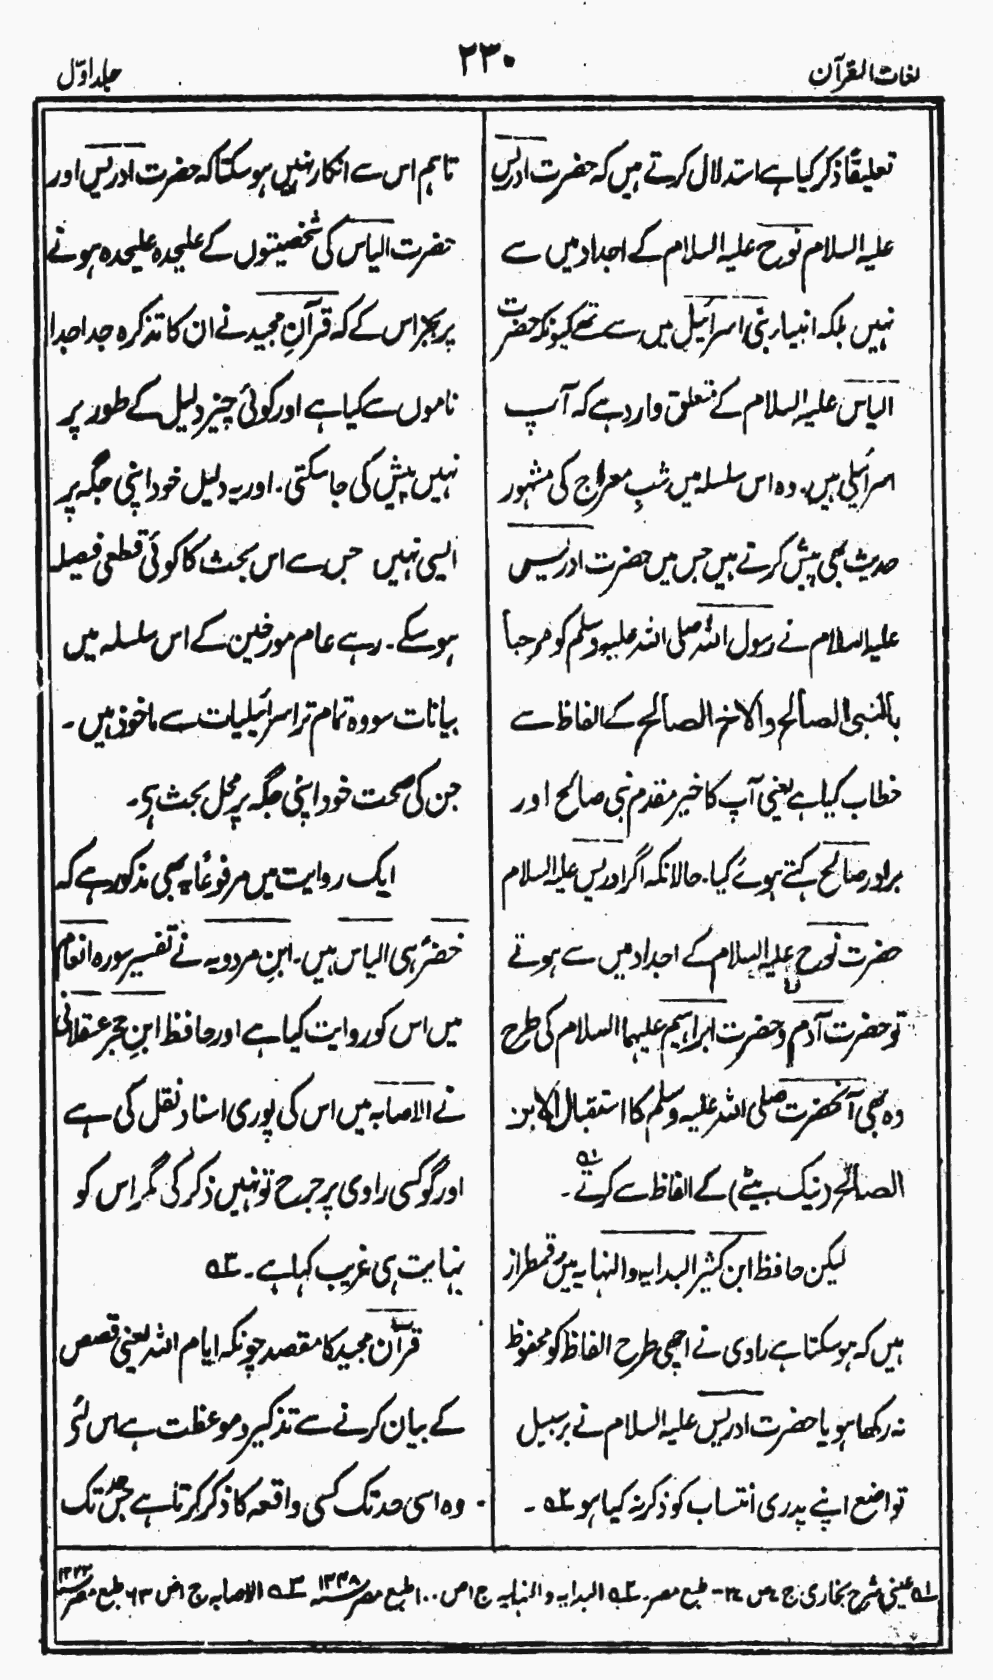 لغات القرآن
۲۳۰
جلد اوّل
تعلیقاً ذکر کیا ہے استدلال کرتے ہیں کہ حضرت ادریس
علیہ السلام نوح علیہ السلام کے اجداد میں سے
نہیں بلکہ انبیاء بنی اسرائیل میں سے تھے کیونکہ حضرت
الیاس علیہ السلام کے متعلق وارد ہے کہ آپ
اسرائیلی ہیں۔ وہ اس سلسلہ میں شبِ معراج کی مشہور
حدیث بھی پیش کرتے ہیں جس میں حضرت ادریس
علیہ السلام نے رسول اللہ صلی اللہ علیہ وسلم کو مرحبا
بالنبی الصالح والاخ الصالح کے الفاظ سے
خطاب کیا ہے یعنی آپ کا خیر مقدم نبی صالح اور
برادر صالح کہتے ہوئے کیا۔ حالانکہ اگر ادریس علیہ السلام
حضرت نوح علیہ السلام کے اجداد میں سے ہوتے
تو حضرت آدم و حضرت ابراہیم علیہما السلام کی طرح
وہ بھی آنحضرت صلی اللہ علیہ وسلم کا استقبال الابن
الصالح (نیک بیٹے) کے الفاظ سے کرتے ۱ھ۔
لیکن حافظ ابن کثیر البدایہ والنہایہ میں رقمطراز
ہیں کہ ہو سکتا ہے راوی نے اچھی طرح الفاظ کو محفوظ
نہ رکھا ہو یا حضرت ادریس علیہ السلام نے بر سبیل
تواضع اپنے پدری انتساب کو ذکر نہ کیا ہو ۲ھ۔
تاہم اس سے انکار نہیں ہو سکتا کہ حضرت ادریس اور
حضرت الیاس کی شخصیتوں کے علیحدہ علیحدہ ہونے
پر بجز اس کے کہ قرآنِ مجید نے ان کا تذکرہ جدا جدا
ناموں سے کیا ہے اور کوئی چیز دلیل کے طور پر
نہیں پیش کی جا سکتی۔ اور یہ دلیل خود اپنی جگہ پر
ایسی نہیں جس سے اس بحث کا کوئی قطعی فیصلہ
ہو سکے۔ رہے عام مورخین کے اس سلسلہ میں
بیانات سو وہ تمام تر اسرائیلیات سے ماخوذ ہیں۔
جن کی صحت خود اپنی جگہ پر محل بحث ہی۔
ایک روایت میں مرفوعاً یہ بھی مذکور ہے کہ
خضر ہی الیاس ہیں۔ ابنِ مردویہ نے تفسیر سورہ انعام
میں اس کو روایت کیا ہے اور حافظ ابنِ حجر عسقلانی
نے الاصابہ میں اس کی پوری اسناد نقل کی ہے
اور گو کسی راوی پر جرح تو نہیں ذکر کی مگر اس کو
نہایت ہی غریب کہا ہے۔ ۳ھ
قرآن مجید کا مقصد چونکہ ایام اللہ یعنی قصص
کے بیان کرنے سے تذکیر و موعظت ہے اس لئے
وہ اسی حد تک کسی واقعہ کا ذکر کرتا ہے جس حد تک
۱ھ عینی شرح بخاری ج ۷ ص ۲۴۰ طبع مصر۔ ۲ھ البدایہ والنہایہ ج ۱ ص ۱۰۰ طبع مصر ۱۳۴۸ ۳ھ الاصابہ ج ۱ ص ۶۳ طبع مصر ۱۳۲۳